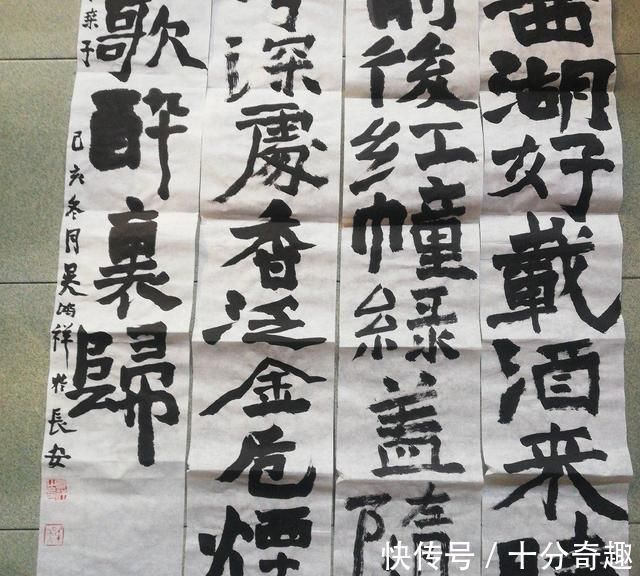 西湖好載酒来時
前後红幢緑盖隨
花深處香泛金卮煙
歌酔裏歸
桑子
己亥冬月吴鸿祥於長安
快传号 / 十分奇趣